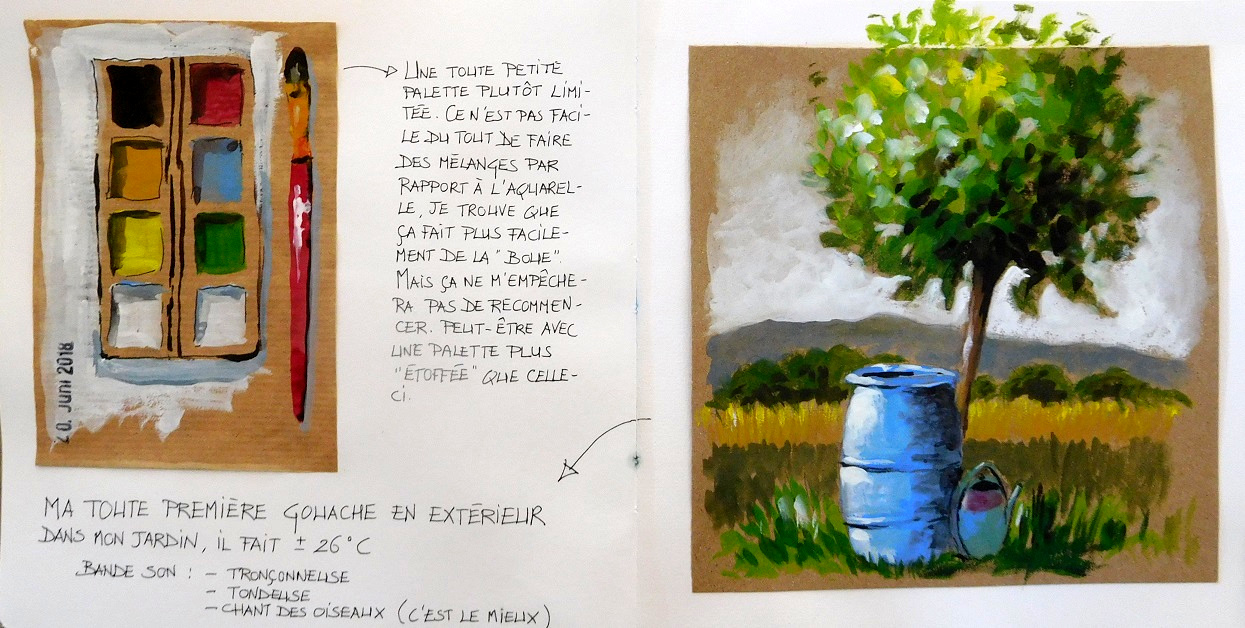 UNE TOUTE PETITE
PALETTE PLUTÔT LIMI-
TÉE. CE N'EST PAS FACI-
LE DU TOUT DE FAIRE
DES MÉLANGES PAR
RAPPORT À L'AQUAREL-
LE, JE TROUVE QUE
ÇA FAIT PLUS FACILE-
MENT DE LA "BOUE".
MAIS ÇA NE M'EMPÊCHE-
RA PAS DE RECOMMEN-
CER. PEUT-ÊTRE AVEC
UNE PALETTE PLUS
"ÉTOFFÉE" QUE CELLE-
CI.
20. JUNI 2018
MA TOUTE PREMIÈRE GOUACHE EN EXTÉRIEUR
DANS MON JARDIN, IL FAIT ± 26°C
BANDE SON : - TRONÇONNEUSE
- TONDEUSE
- CHANT DES OISEAUX (C'EST LE MIEUX)